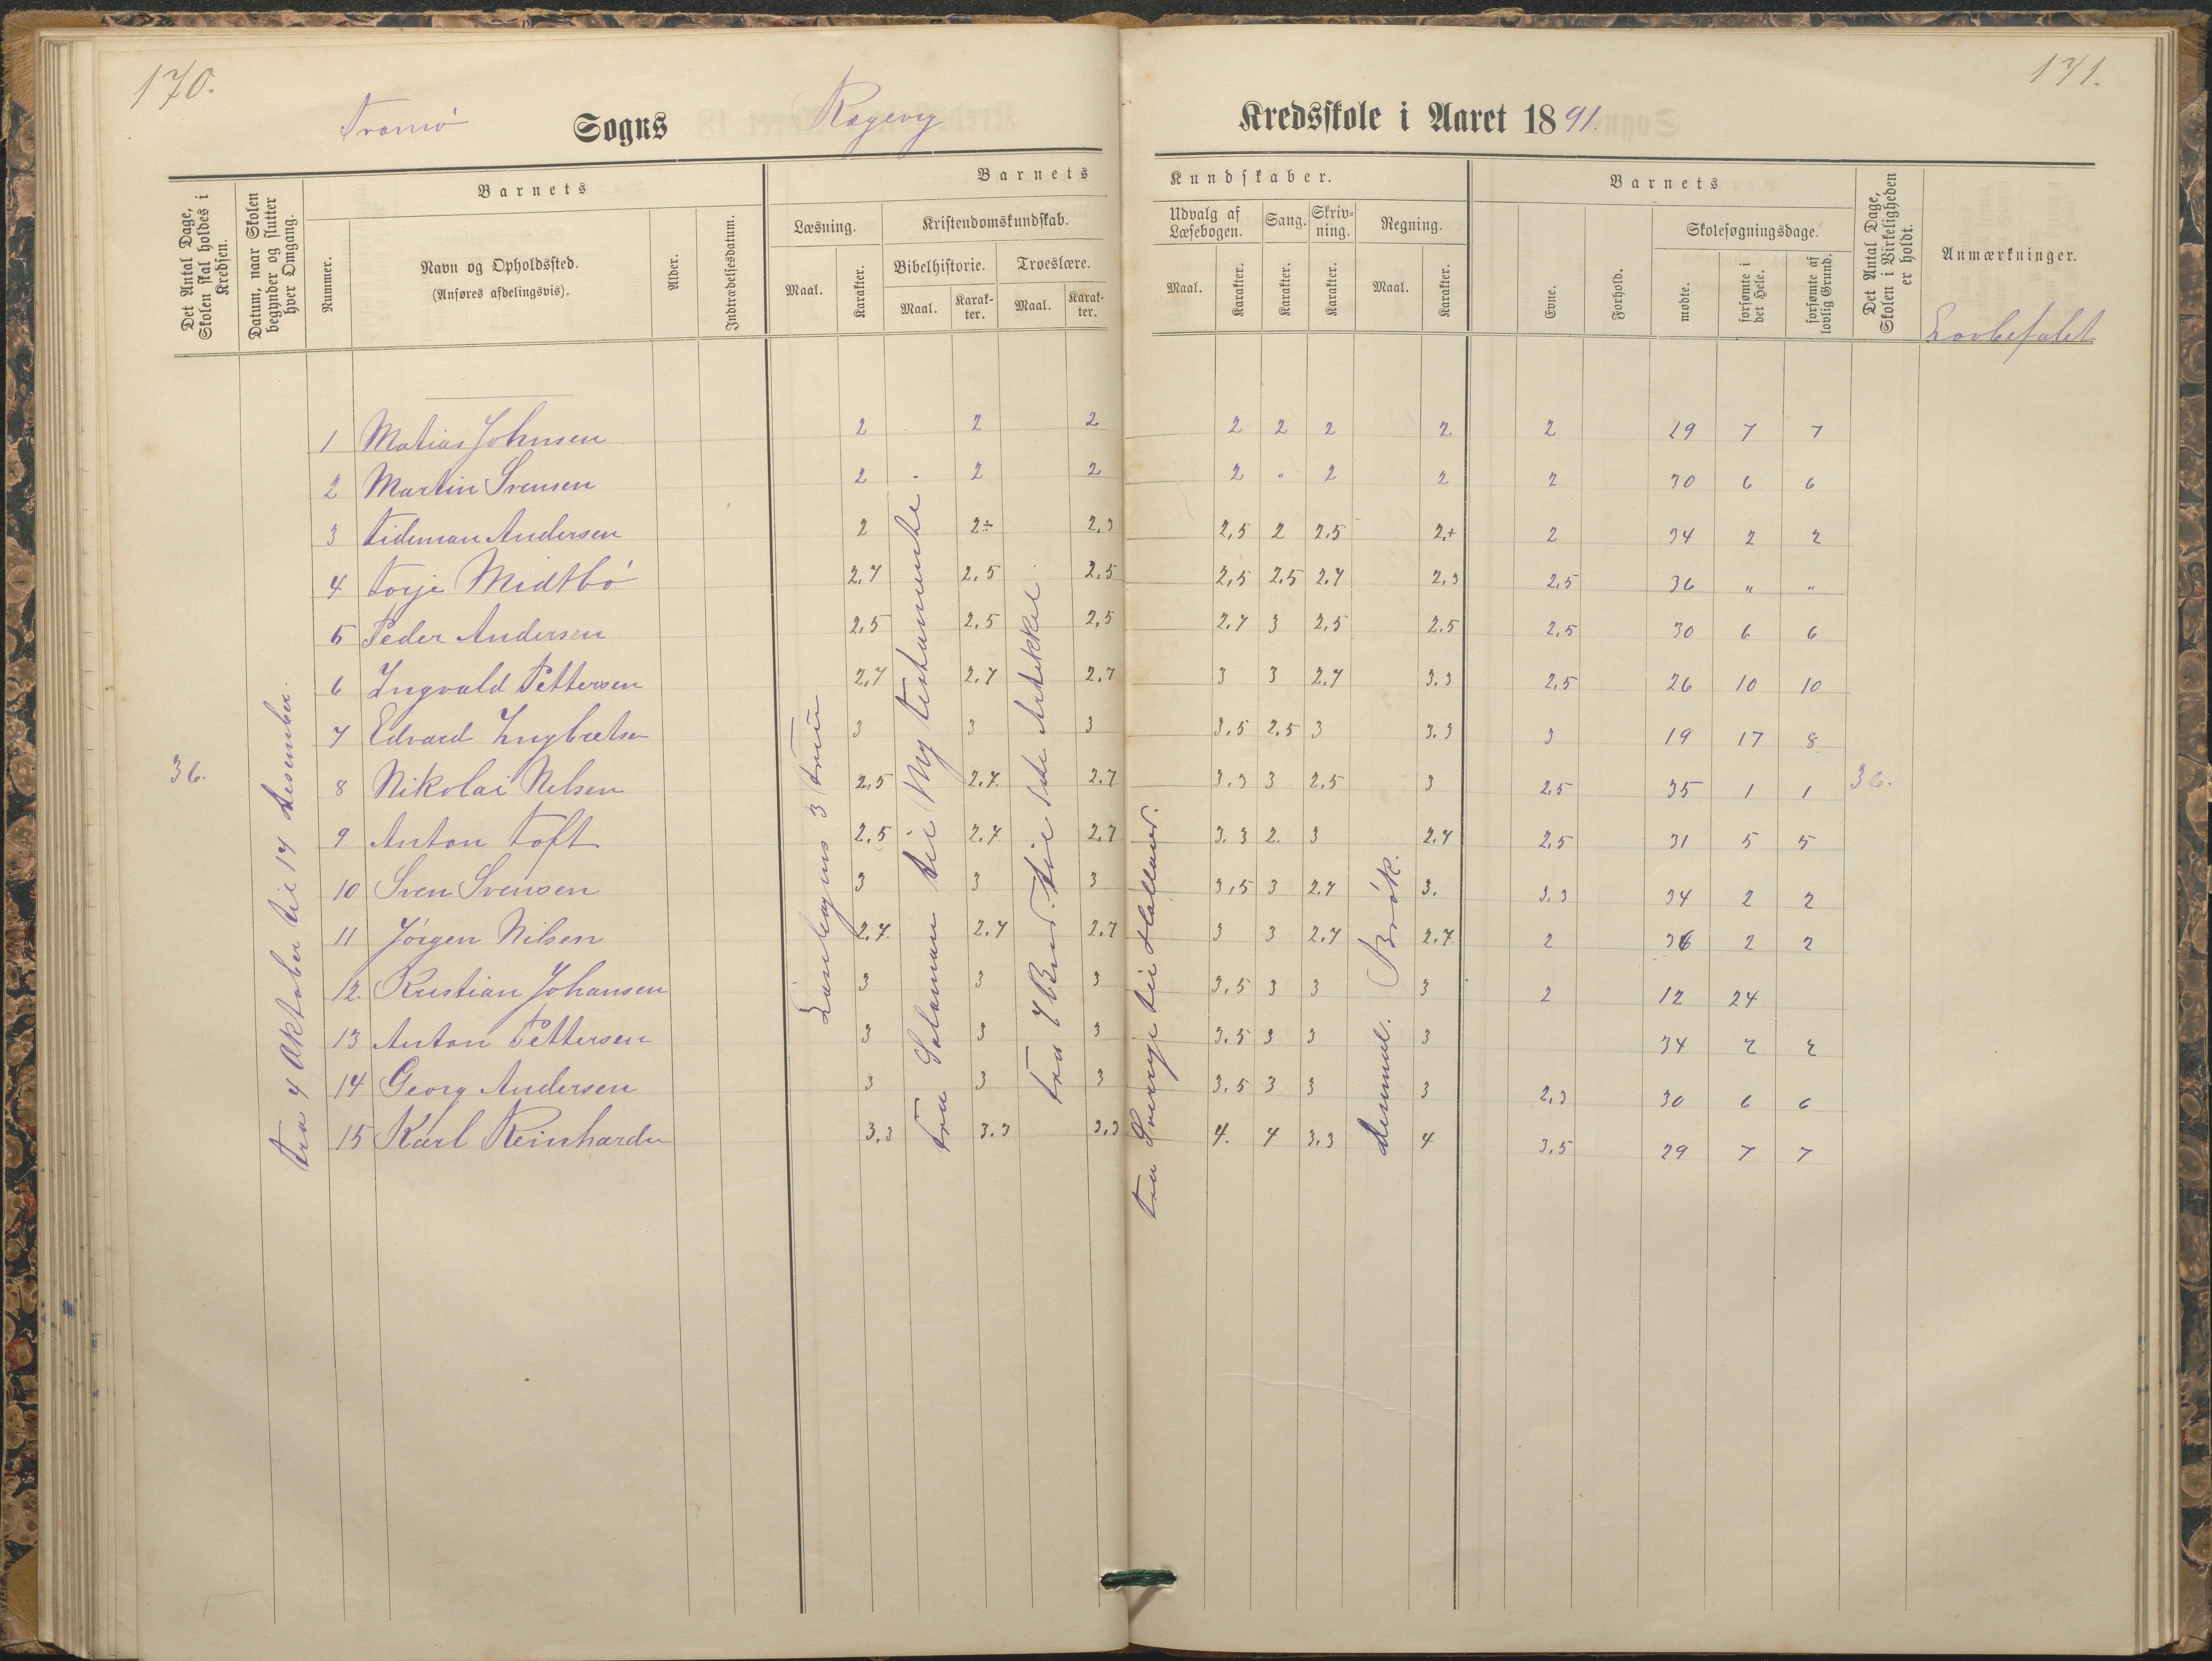 170.
171.
Tromø Sogns Kredsskole i Aaret 1891.
Det Antal Dage, Skolen skal holdes i Kredsen.
Datum, naar Skolen begynder og slutter hver Omgang.
Barnets
Nummer.
Navn og Opholdssted.
(Anføres afdelingsvis).
Alder.
Indtrædelsesdatum.
Barnets Kundskaber.
Læsning.
Maal.
Karakter.
Kristendomskundskab.
Bibelhistorie.
Maal.
Karakter.
Troeslære.
Maal.
Karakter.
Udvalg af Læsebogen.
Maal.
Karakter.
Sang.
Karakter.
Skrivning.
Karakter.
Regning.
Maal.
Karakter.
Barnets
Evne.
Forhold.
Skolesøgningsdage.
mødte.
forsømte i det Hele.
forsømte af lovlig Grund.
Det Antal Dage, Skolen i Virkeligheden er holdt.
Anmærkninger.
Lovbefalet
36.
Fra 4 Oktober til 14 Desember.
1 Matias Johnsen 2 2 2 2 2 2 2 2 29 7 7
2 Martin Svensen 2 2 2 2 " 2 2 2 30 6 6
3 Tideman Andersen 2 2÷ 2,3 2,5 2 2,5 2,+ 2 34 2 2
4 Torje Midtbö 2,7 2,5 2,5 2,5 2,5 2,7 2,3 2,5 36 " "
5 Peder Andersen 2,5 2,5 2,5 2,7 3 2,5 2,5 2,5 30 6 6
6 Ingvald Pettersen 2,7 2,7 2,7 3 3 2,7 3.3 2,5 26 10 10
7 Edvard Ingbretsen 3 3 3 3,5 2,5 3 3.3 3 19 17 8
8 Nikolai Nilsen 2,5 2,7. 2,7 3.3 3 2,5 3 2,5 35 1 1 36.
9 Anton Toft 2,5 2,7. 2,7 3.3 2. 3 2,7 2,5 31 5 5
10 Sven Svensen 3 3 3 3,5 3 2,7 3. 3,3 34 2 2
11 Jörgen Nilsen 2,7. 2,7 2,7 3 3 2,7 2,7. 2 36 2 2
12. Kristian Johansen 3 3 3 3,5 3 3 3 2 12 24
13 Anton Pettersen 3 3 3 3.5 3 3 3 34 2 2
14 Georg Andersen 3 3 3 3.5 3 3 3 2,3 30 6 6
15 Karl Reinhardn 3,3 3.3 3,3 4. 4 3,3 4 3,5 29 7 7
3 Trin
Fra Salomon til Ny testamente
Fra 7 Bud. til 1ste Artikkel
Fra Sverige til Holland.
desimal. Brök.